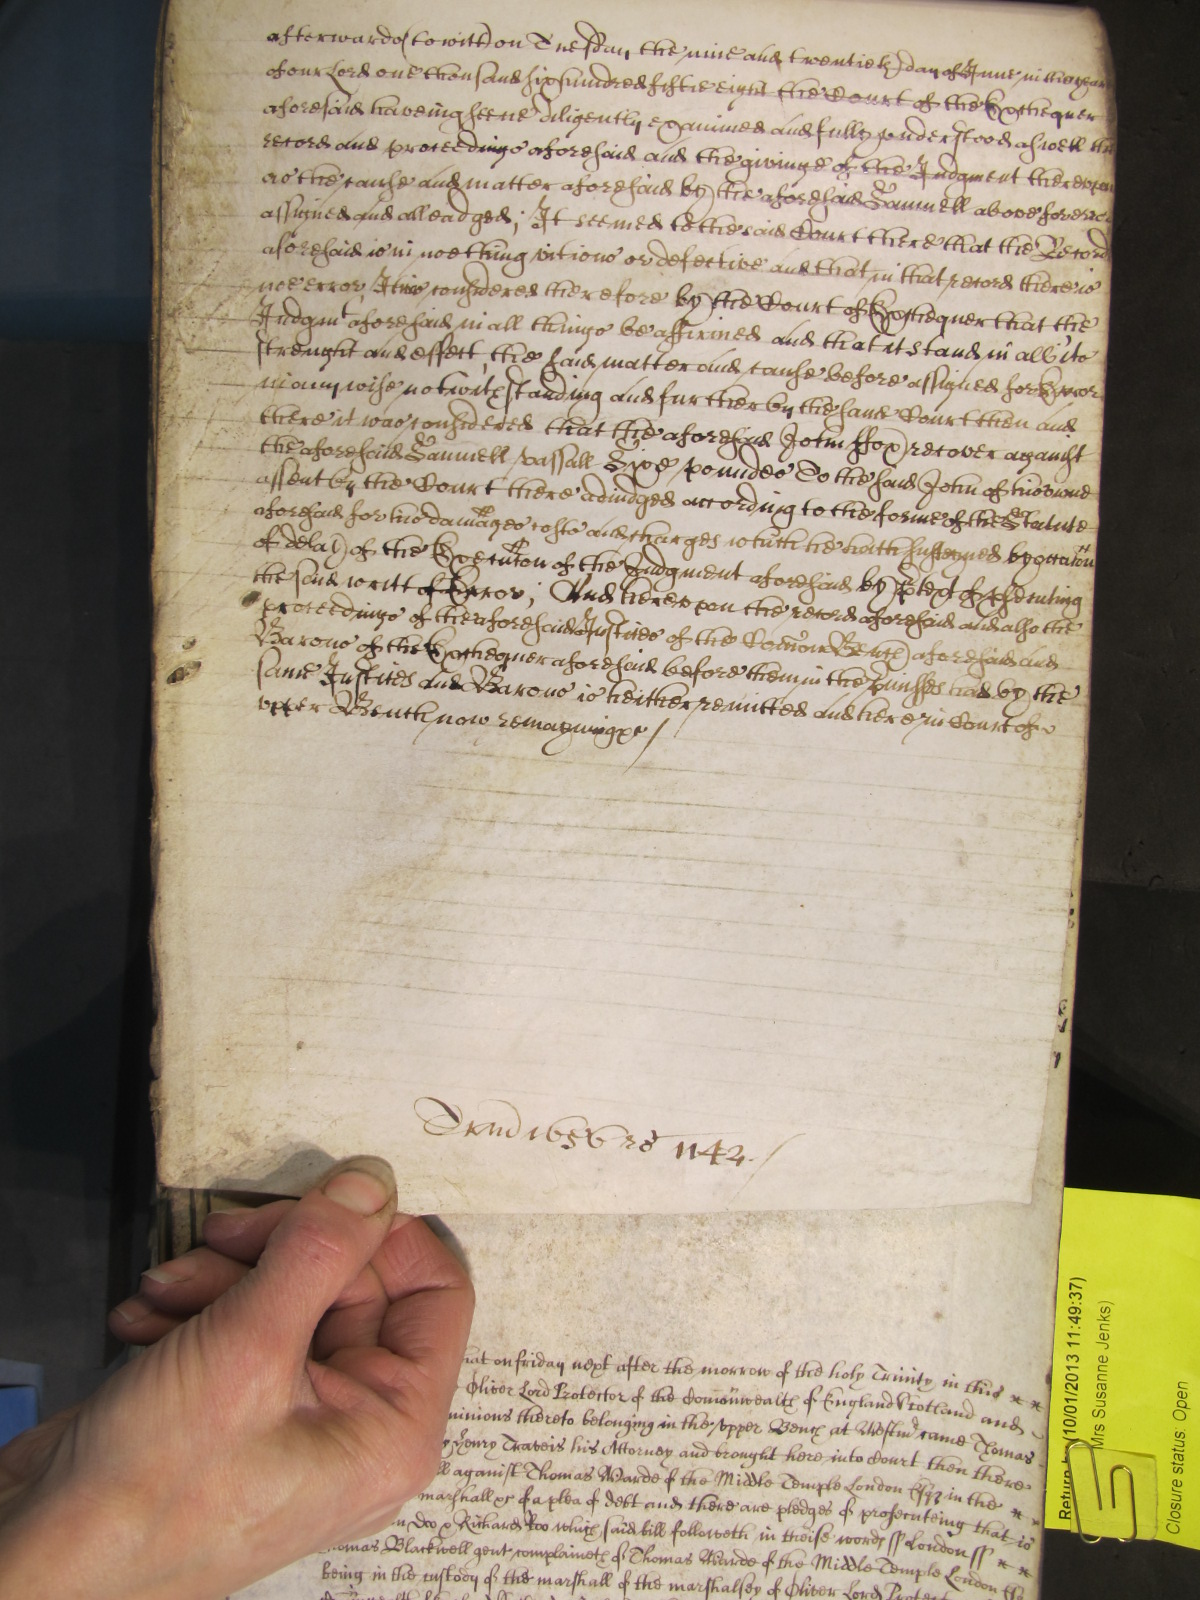 afterwards (to witt) on Tuesday the nine and twentieth day of June in the year
of our Lord one thousand six hundred fiftie eight the Court of the Exchequer
aforesaid haveing seene diligently examined and fully understood aswell the
record and proceedings aforesaid and the givinge of the Judgment thereupon
as the cause and matter aforesaid by the aforesaid Samuell above for error
assigned and alleadged; It seemed to the said Court there that the Record
aforesaid is in nothing vitious or defective and that in that record there is
noe error, It is considered therefore by the Court of Exchequer that the
Judgmt aforesaid in all things be affirmed and that it stand in all its
strenght and effect, the said matter and cause before assigned for Error
in any wise notwithstanding and further by the same Court then and
there it was considered that the aforesaid John ffox recover against
the aforesaid Samuell vassall Sixe poundes to the said John of his owne
assent by the Court there adiudged according to the forme of the Statute
aforesaid for his damages costs and charges which he hath susteyned by occacon
of delay of the Execucon of the Judgment aforesaid by ptext of psecuting
the said writt of Error; And hereupon the record aforesaid and also the
proceedings of the aforesaid Justices of the Comon Bench aforesaid and
Barons of the Exchequer aforesaid before them in the pmisses had by the
same Justices and Barons is hither remitted and here in Court of
upper Bench now remayning &c /
Trin 1656 ro 1142.
hat on friday next after the morrow of the holy Trinity in this
Oliver Lord Protector of the Comonwealth of England Scotland and
minions thereto belonging in the upper Bench at Westmr came Thomas
y Henry Traveis his Attorney and brought here into Court then there
ll against Thomas Warde of the Middle Temple London Esqr in the
marshall &c of a plea of debt and there are pledges of prosecuteing that is
n doo & Richard Roo which said bill followeth in theise words ss London ss
homas Blackwell gent complaineth of Thomas Warde of the Middle Temple London Esq
being in the custody of the marshall of the marshalsey of Oliver Lord Protect
Return b (10/01/2013 11:49:37)
Mrs Susanne Jenks)
Closure status: Open